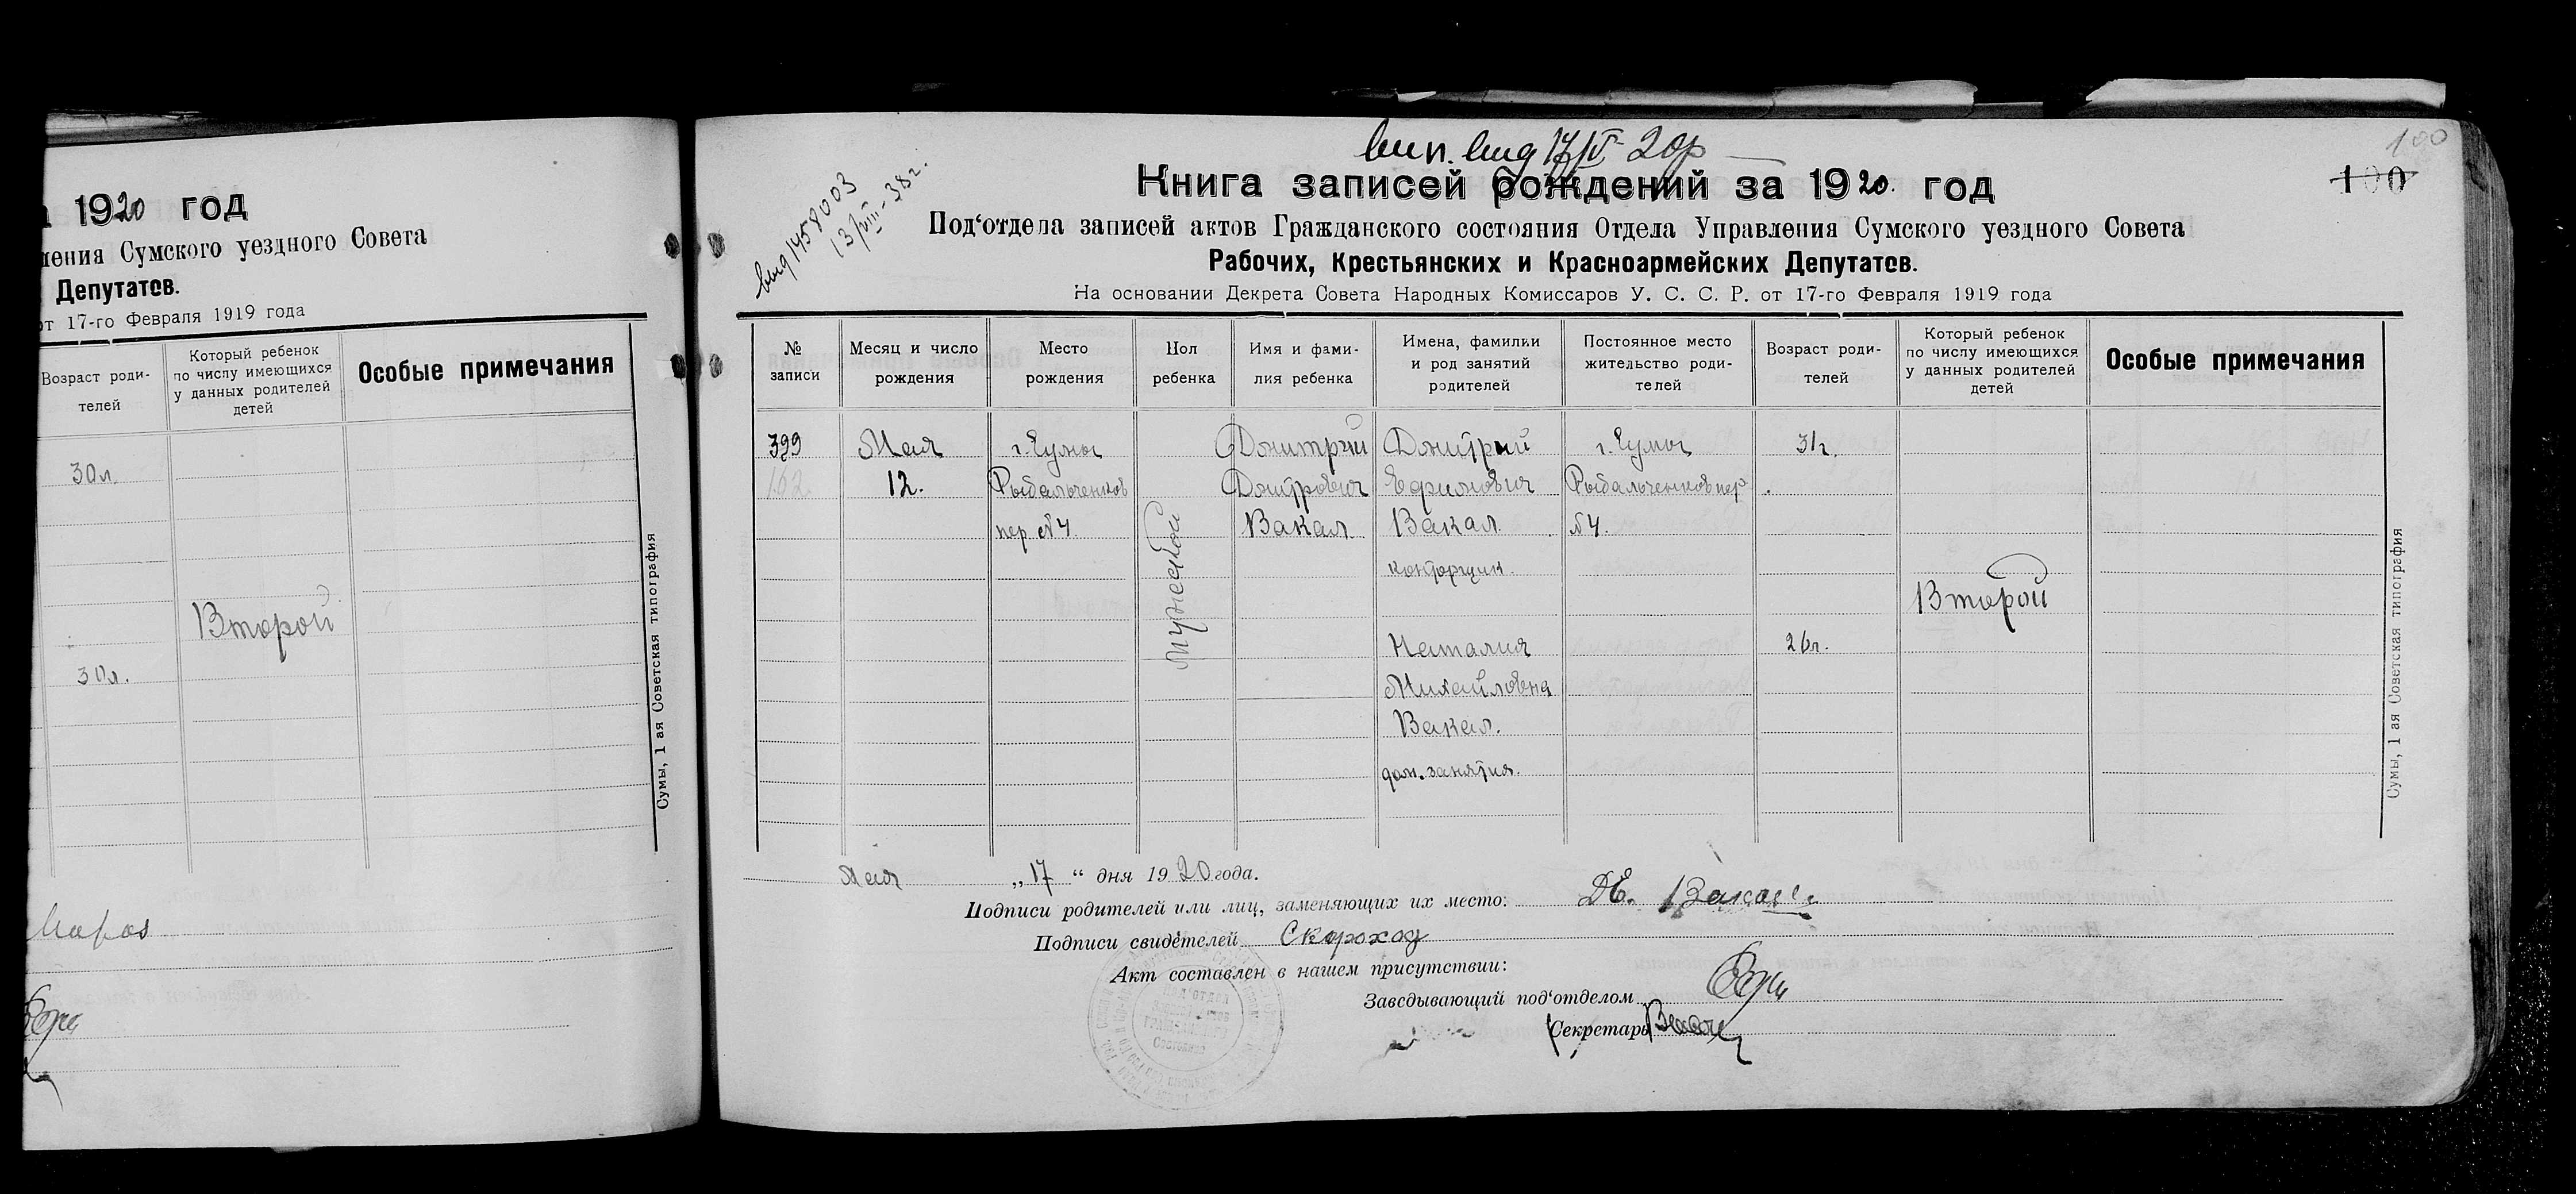 1920 год
ления Сумского уездного Совета
Депутатов.
от 17-го Февраля 1919 года
Возраст роди-
телей
Который ребенок
по числу имеющихся
у данных родителей
детей
Особые примечания
30л.
Второй
30л.
Сумы, 1 ая Советская типография
вид 1458003
13/VIII-38г.
вип. вид 17/V-20р
100
100
Книга записей рождений за 1920. год
Под‘отдела записей актов Гражданского состояния Отдела Управления Сумского уездного Совета
Рабочих, Крестьянских и Красноармейских Депутатов.
На основании Декрета Совета Народных Комиссаров У. С. С. Р. от 17-го Февраля 1919 года
№
записи
Месяц и число
рождения
Место
рождения
Пол
ребенка
Имя и фами-
лия ребенка
Имена, фамилии
и род занятий
родителей
Постоянное место
жительство роди-
телей
Возраст роди-
телей
Который ребенок
по числу имеющихся
у данных родителей
детей
Особые примечания
399
162.
Мая
12.
г. Сумы
Рыбальченков
пер. №4
Мужской
Дмитрий
Дмитрович
Вакал
Дмитрий
Ефимович
Вакал
конторщик.
Наталия
Михайловна
Вакал.
дом. занятия.
г. Сумы
Рыбальченков пер
№4.
31г.
26г.
Второй
Сумы, 1 ая Советская типография
Мая „17“ дня 1920 года.
Подписи родителей или лиц, заменяющих их место: ДЕ. Вакал.
Подписи свидетелей Скороход
Акт составлен в нашем присутствии:
Заведывающий под‘отделом
Секретарь